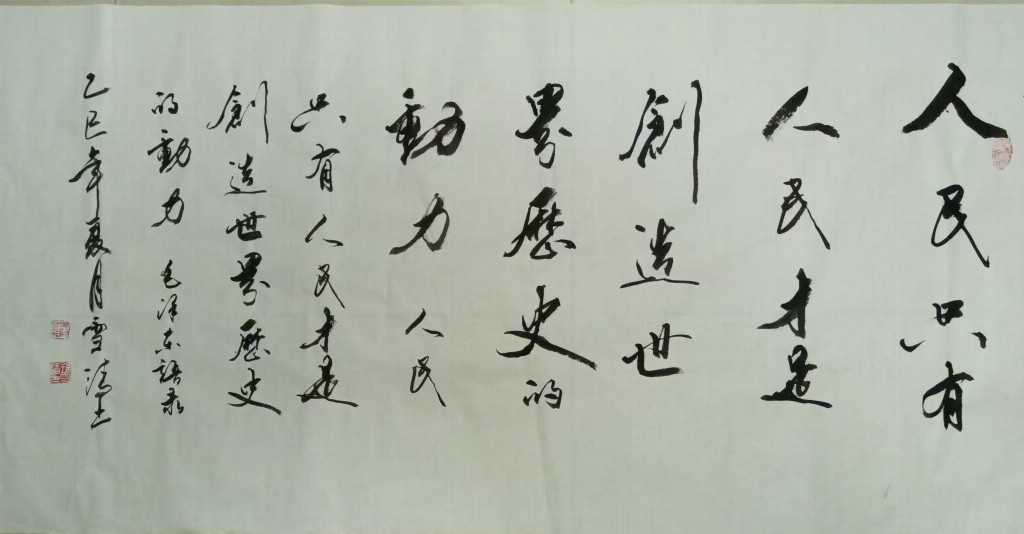 人民只有
人民才是
創造世
界歷史的
動力人民
只有人民才是
創造世界歷史
的動力 毛泽东語录
乙巳年夏月雪清书